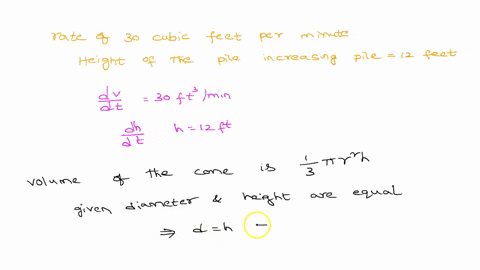 rate of 30 cubic feet per minute
Height of the pile increasing pile = 12 feet
dv/dt = 30 ft³/min
dh/dt h = 12 ft
volume of the cone is 1/3 πr²h
given diameter & height are equal
⇒ d = h –